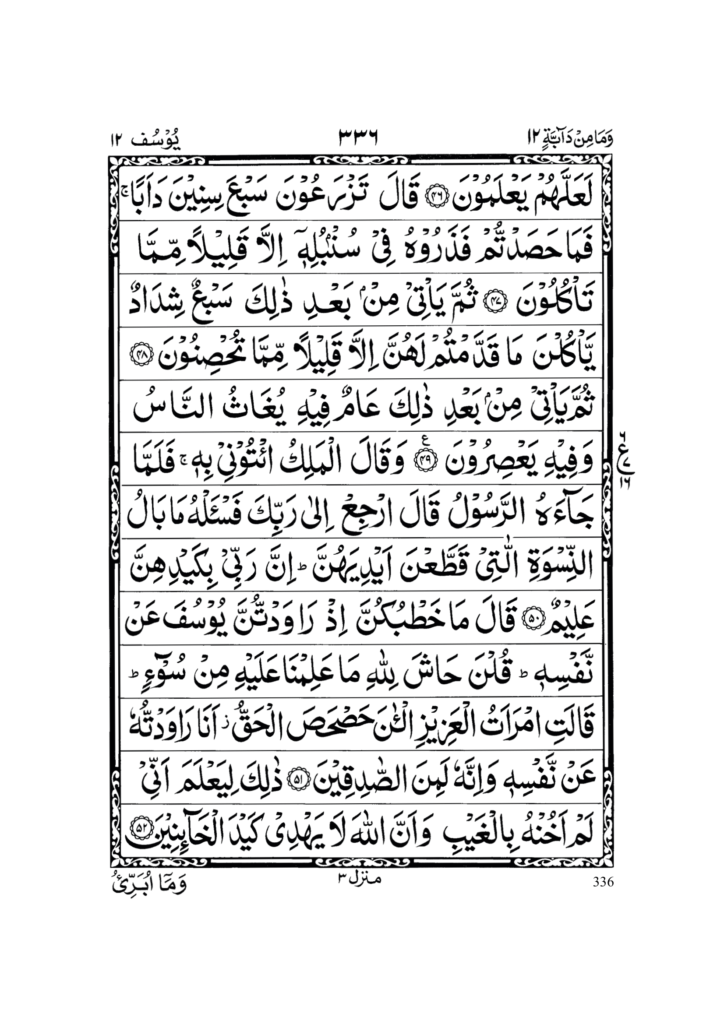 وَمَا مِنْ دَآبَّةٍ ١٢ ٣٣٦ يُوْسُف ١٢
لَعَلَّهُمْ يَعْلَمُوْنَ ﴿۴۶﴾ قَالَ تَزْرَعُوْنَ سَبْعَ سِنِيْنَ دَاَبًا ۚ
فَمَا حَصَدْتُّمْ فَذَرُوْهُ فِيْ سُنْۢبُلِهٖۤ اِلَّا قَلِيْلًا مِّمَّا
تَاْكُلُوْنَ ﴿۴۷﴾ ثُمَّ يَاْتِيْ مِنْۢ بَعْدِ ذٰلِكَ سَبْعٌ شِدَادٌ
يَّاْكُلْنَ مَا قَدَّمْتُمْ لَهُنَّ اِلَّا قَلِيْلًا مِّمَّا تُحْصِنُوْنَ ﴿۴۸﴾
ثُمَّ يَاْتِيْ مِنْۢ بَعْدِ ذٰلِكَ عَامٌ فِيْهِ يُغَاثُ النَّاسُ
وَفِيْهِ يَعْصِرُوْنَ ﴿۴۹﴾ ع وَقَالَ الْمَلِكُ ائْتُوْنِيْ بِهٖ ۚ فَلَمَّا
٦ ع ٧ ١٦
جَآءَهُ الرَّسُوْلُ قَالَ ارْجِعْ اِلٰى رَبِّكَ فَسْئَلْهُ مَا بَالُ
النِّسْوَةِ الّٰتِيْ قَطَّعْنَ اَيْدِيَهُنَّ ؕ اِنَّ رَبِّيْ بِكَيْدِهِنَّ
عَلِيْمٌ ﴿۵۰﴾ قَالَ مَا خَطْبُكُنَّ اِذْ رَاوَدْتُّنَّ يُوْسُفَ عَنْ
نَّفْسِهٖ ؕ قُلْنَ حَاشَ لِلّٰهِ مَا عَلِمْنَا عَلَيْهِ مِنْ سُوْٓءٍ ؕ
قَالَتِ امْرَاَتُ الْعَزِيْزِ الْـٰٔنَ حَصْحَصَ الْحَقُّ ز اَنَا رَاوَدْتُّهٗ
عَنْ نَّفْسِهٖ وَاِنَّهٗ لَمِنَ الصّٰدِقِيْنَ ﴿۵۱﴾ ذٰلِكَ لِيَعْلَمَ اَنِّيْ
لَمْ اَخُنْهُ بِالْغَيْبِ وَاَنَّ اللّٰهَ لَا يَهْدِيْ كَيْدَ الْخَآئِنِيْنَ ﴿۵۲﴾
وَمَآ اُبَرِّئُ منزل ٣ 336